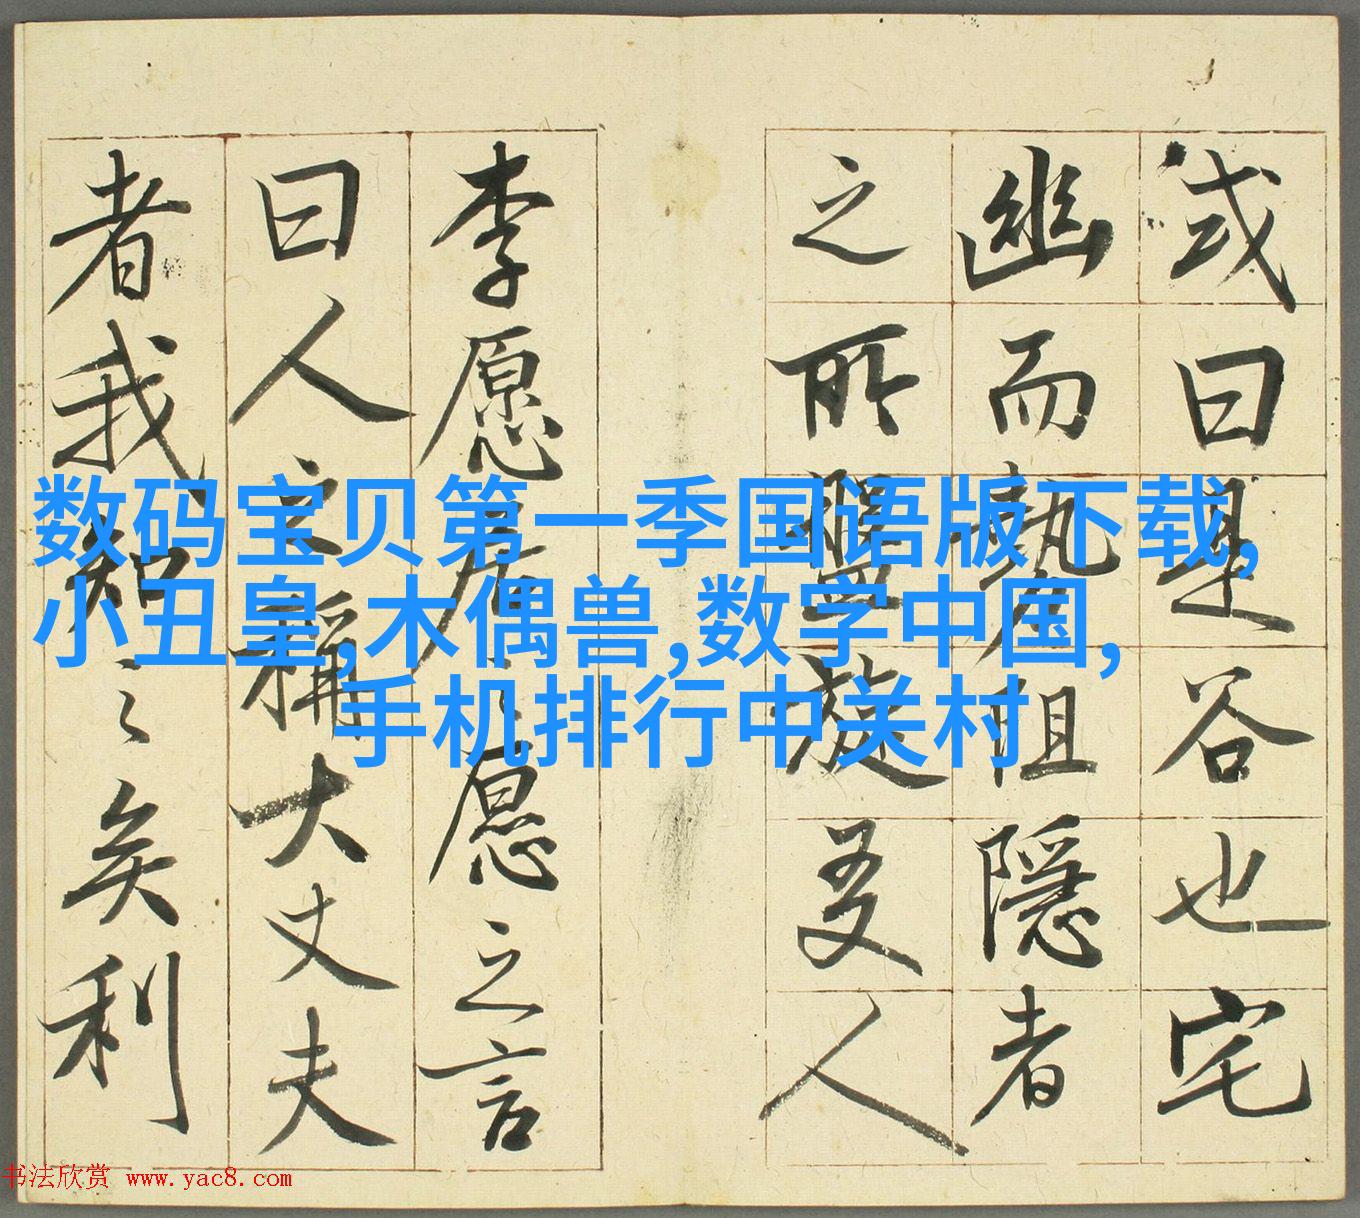 或曰是谷也宅
幽而勢阻隱者
之所盤旋友人
李愿居之愿之言
曰人之稱大丈夫
者我知之矣利
数码宝贝第一季国语版下载,
小丑皇,木偶兽,数字中国,
手机排行中关村
书法欣赏 www.yac8.com